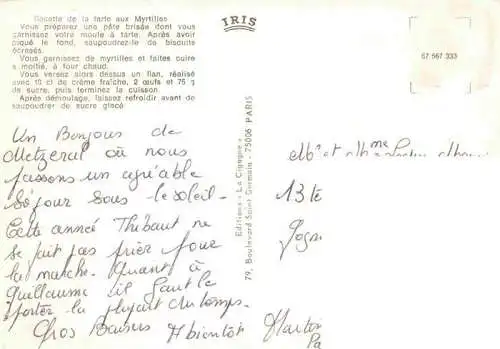 Recette de la tarte aux Myrtilles
Vous préparez une pâte brisée dont vous
garnissez votre moule à tarte. Après avoir
piqué le fond, saupoudrez-le de biscuits
écrasés.
Vous garnissez de myrtilles et faites cuire
a moitié, à four chaud.
Vous versez alors dessus un flan, réalisé
avec 10 cl de crème fraîche, 2 œufs et 75 g
de sucre, puis terminez la cuisson.
Après démoulage, laissez refroidir avant de
saupoudrer de sucre glacé
IRIS
67 567 333
Editions "La Cigogne"
79, Boulevard Saint Germain - 75006 PARIS
Un Bonjour de
Metzeral où nous
passons un agréable
séjour sous le soleil.
Cette année Thibaut ne
se fait pas prier pour
la marche. Quant à
Guillaume il faut le
porter la plupart du temps.
Gros Baisers A bientôt
Mr et Mme
13 te